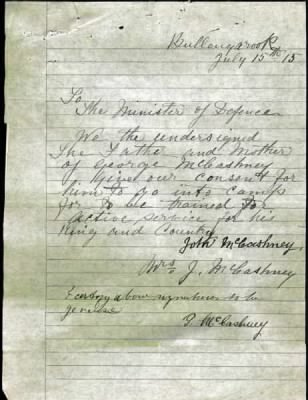 Bullengarook
July 15th 15
To
The Minister of Defence
We the undersigned
The Father and Mother
of George McCashney
Give our consent for
him to go into camp
for to be trained for
active service for his
King and Country
John McCashney.
Mrs J. McCashney
I certify above signatures to be
genuine
J. McCashney